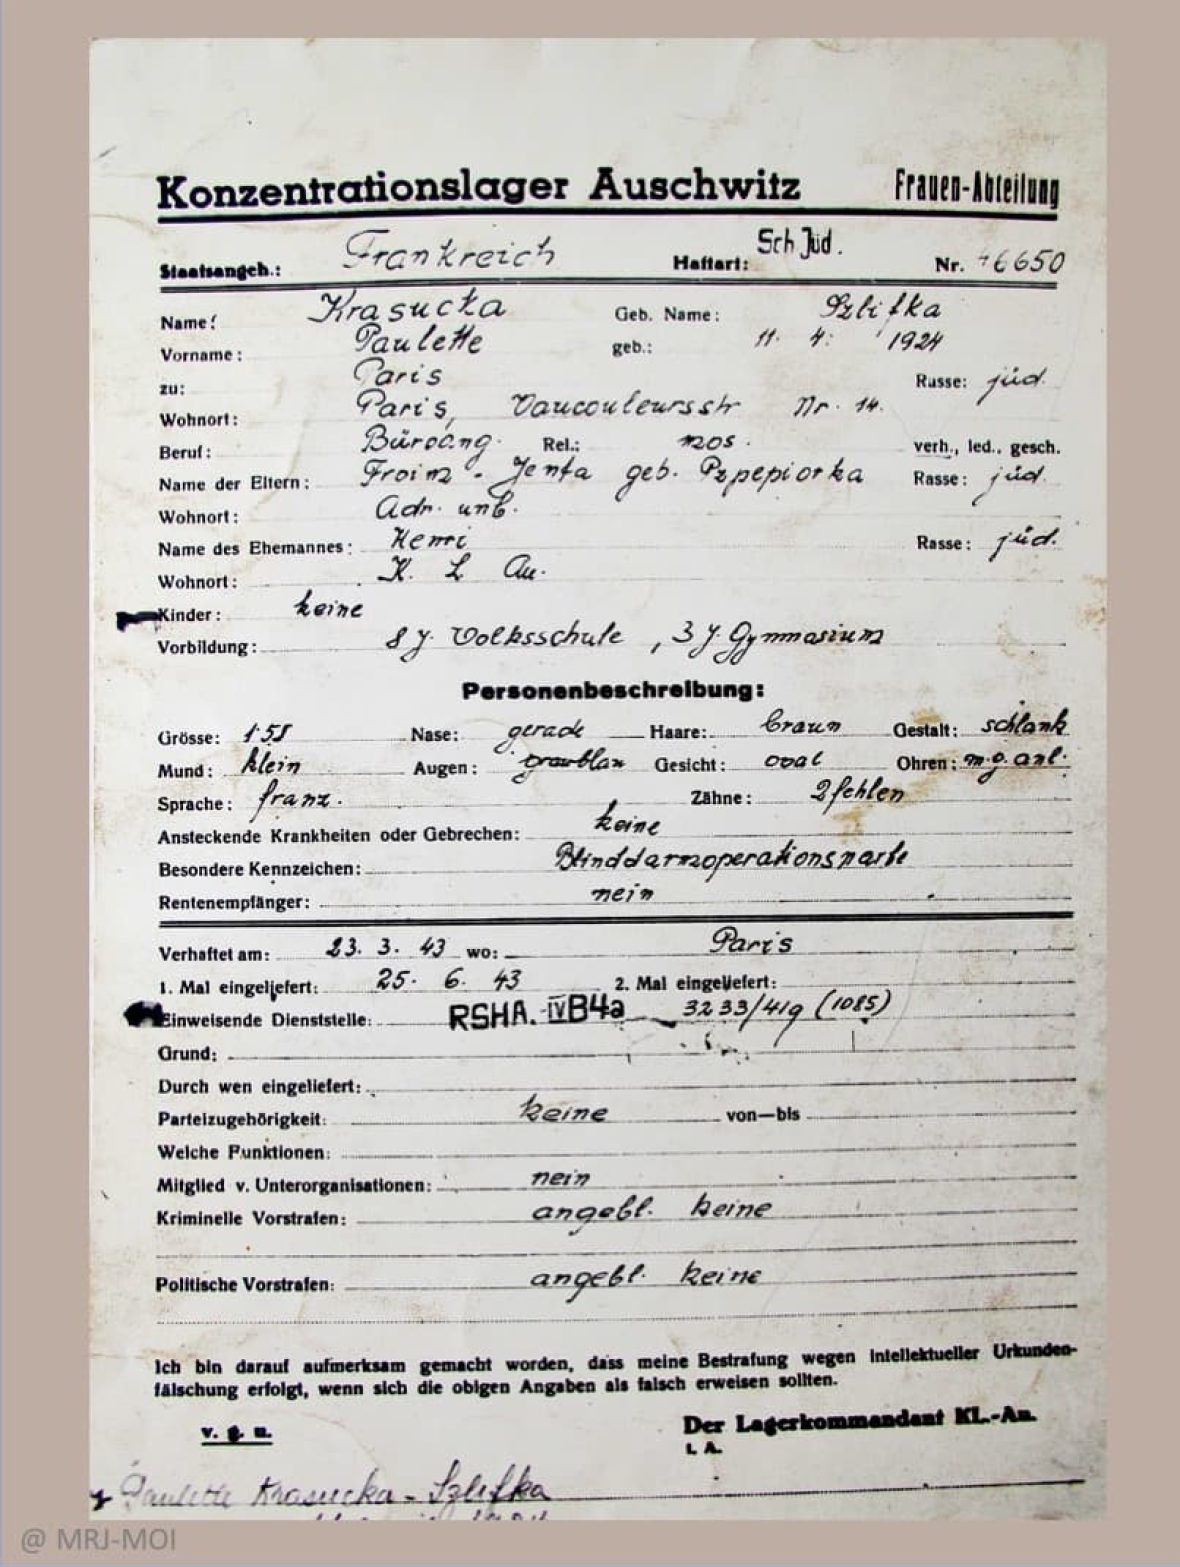 Konzentrationslager Auschwitz Frauen-Abteilung
Staatsangeh.: Frankreich Haftart: Sch Jüd. Nr. 46650
Name: Krasucka Geb. Name: Szlifka
Vorname: Paulette geb.: 11. 4. 1924
zu: Paris Rasse: jüd.
Wohnort: Paris, Vaucouleursstr Nr. 14.
Beruf: Büroang. Rel.: mos. verh., led., gesch.
Name der Eltern: Froim - Jenta geb. Pzpepiorka Rasse: jüd.
Wohnort: Adr. unb.
Name des Ehemannes: Henri Rasse: jüd.
Wohnort: K. L Au.
Kinder: keine
Vorbildung: 8 J. Volksschule, 3 J. Gymnasium
Personenbeschreibung:
Grösse: 155 Nase: gerade Haare: braun Gestalt: schlank
Mund: klein Augen: graublau Gesicht: oval Ohren: m.g. anl.
Sprache: franz. Zähne: 2 fehlen
Ansteckende Krankheiten oder Gebrechen: keine
Besondere Kennzeichen: Blinddarmoperationsnarbe
Rentenempfänger: nein
Verhaftet am: 23. 3. 43 wo: Paris
1. Mal eingeliefert: 25. 6. 43 2. Mal eingeliefert:
Einweisende Dienststelle: RSHA. IV B4a 3233/41g (1085)
Grund:
Durch wen eingeliefert:
Parteizugehörigkeit: keine von—bis
Welche Funktionen:
Mitglied v. Unterorganisationen: nein
Kriminelle Vorstrafen: angebl. keine
Politische Vorstrafen: angebl. keine
Ich bin darauf aufmerksam gemacht worden, dass meine Bestrafung wegen intellektueller Urkunden-
fälschung erfolgt, wenn sich die obigen Angaben als falsch erweisen sollten.
v. g. u. Der Lagerkommandant KL.-Au.
I. A.
Paulette Krasucka - Szlifka
@ MRJ-MOI